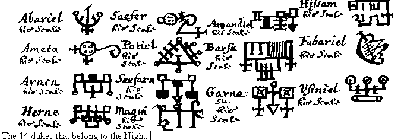 Abariel
his Seale
Ameta
his Seale
Arnen
his Seale
Herne
his Seale
Saefer
his Seale
Potiel
his
Seale
Saefarn
his
Seale
Maqui
his
Seale
Amandiel
his Seale
Barsu
his
Seale
Garnasu
his
Seale
Hissam
his Seale
Fabariel
his Seale
Usiniel
his Seale
The 14 dukes that belong to the Night.